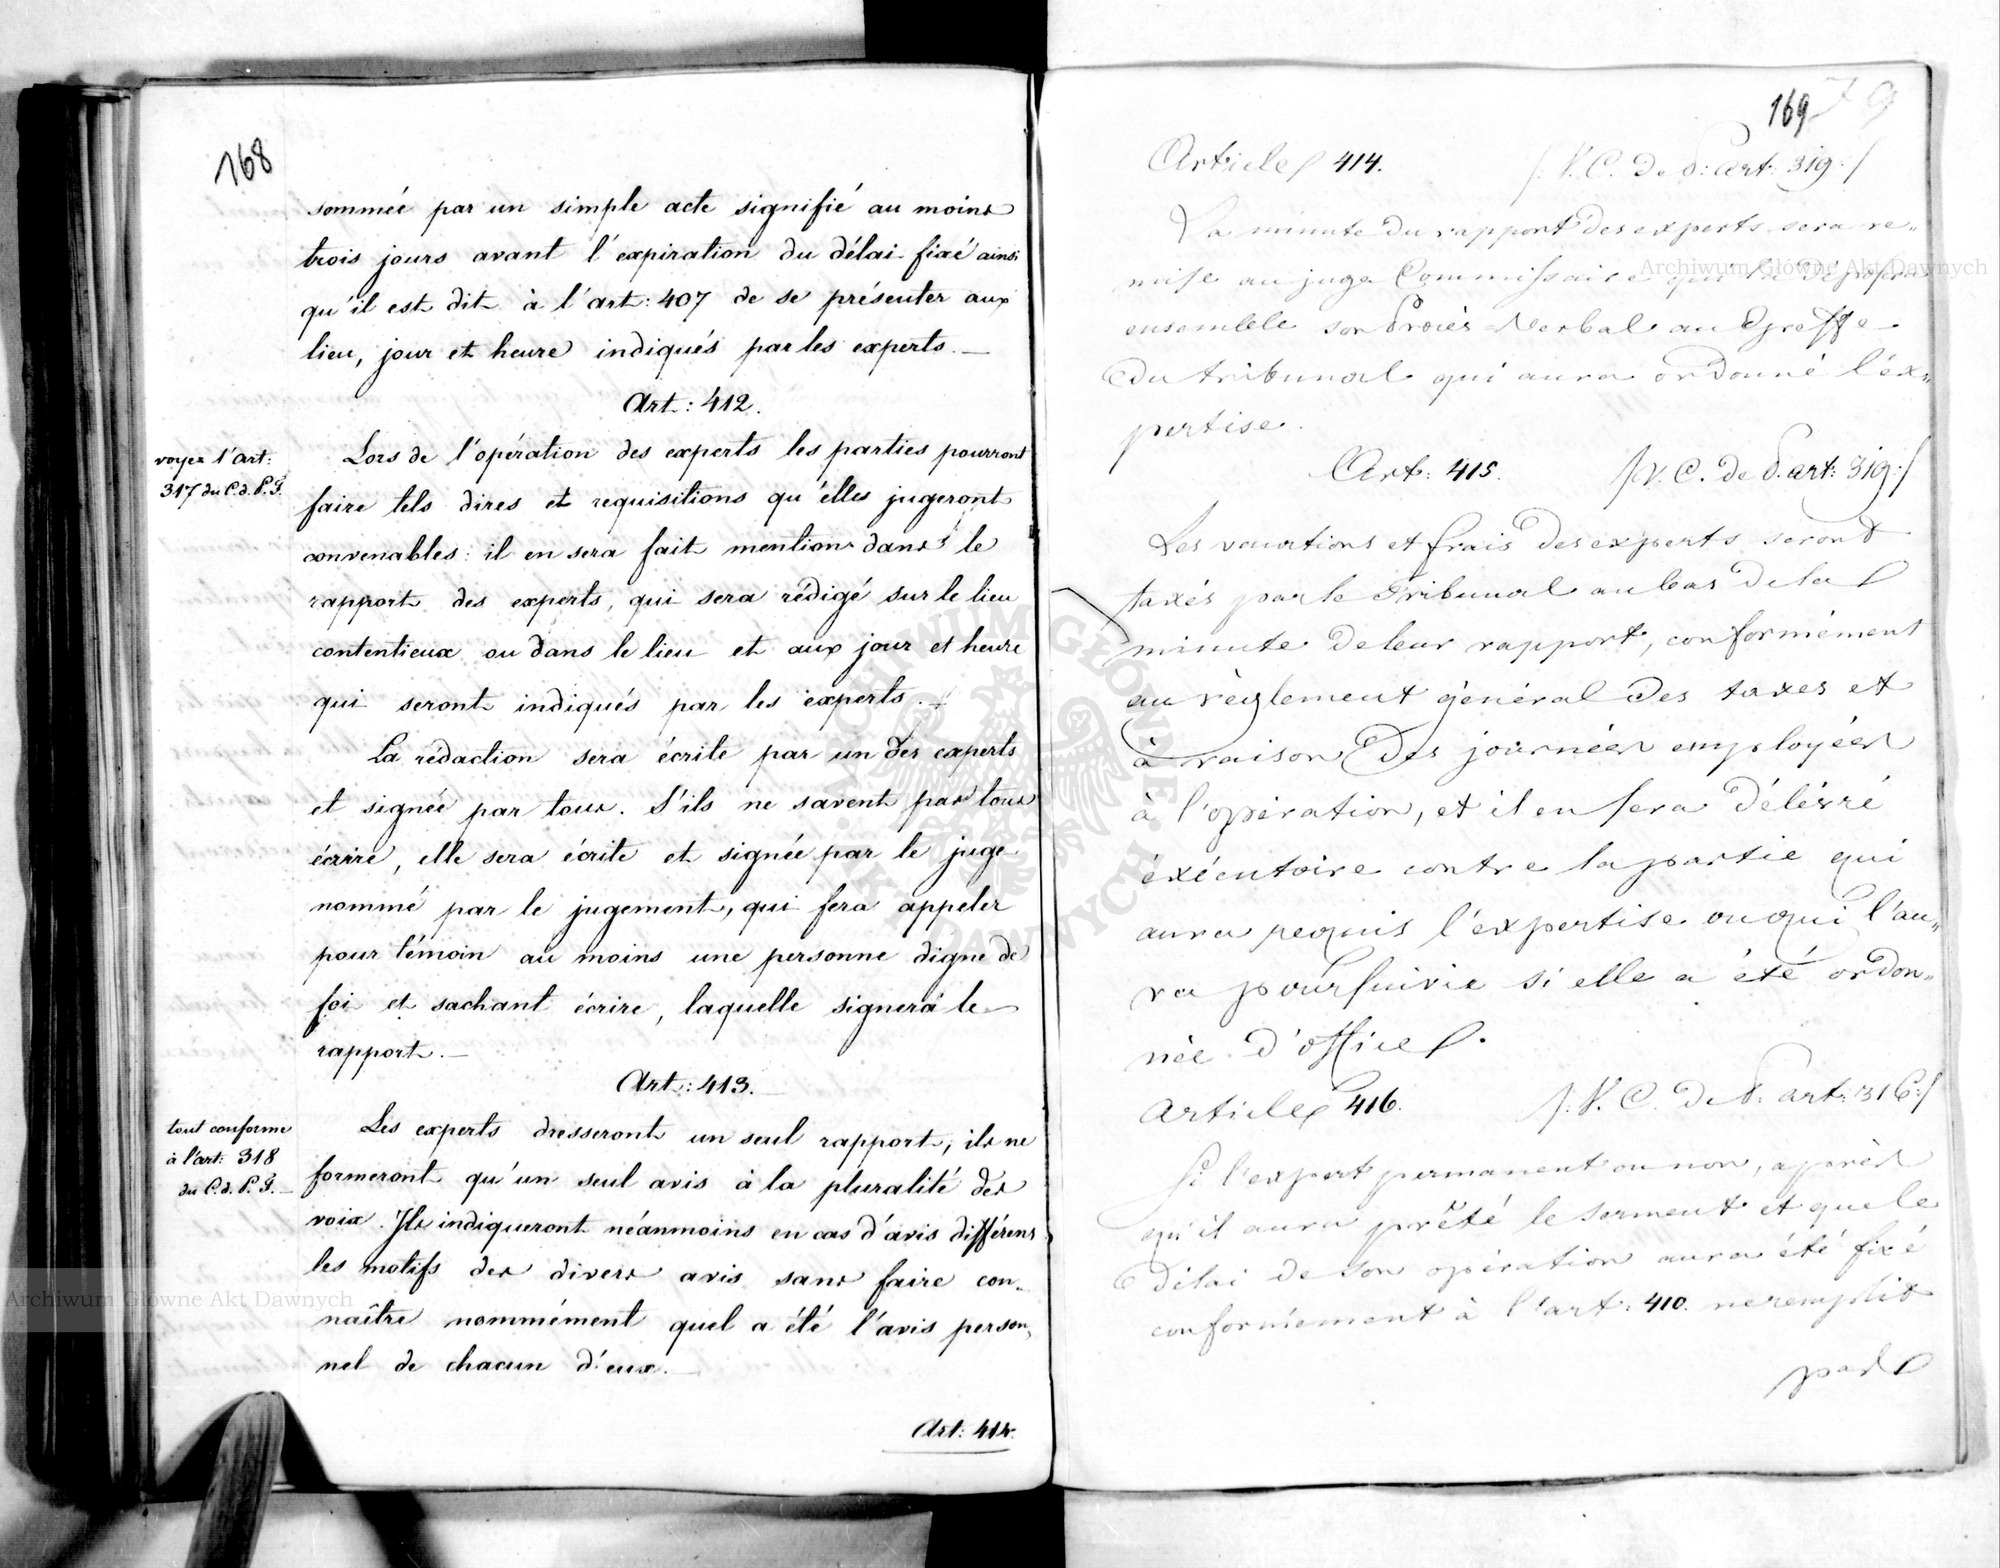 168
sommée par un simple acte signifié au moins
trois jours avant l'expiration du délai fixé ainsi
qu'il est dit à l'art: 407 de se présenter aux
lieu, jour et heure indiqués par les experts.—
Art: 412.
voyez l'art:
317 du C.d.P.F.
Lors de l'opération des experts les parties pourront
faire tels dires et requisitions qu'elles jugeront
convenables: il en sera fait mention dans le
rapport des experts, qui sera rédigé sur le lieu
contentieux ou dans le lieu et aux jour et heure
qui seront indiqués par les experts.
La rédaction sera écrite par un des experts
et signée par tous. S'ils ne savent pas tous
écrire, elle sera écrite et signée par le juge
nommé par le jugement, qui fera appeler
pour témoin au moins une personne digne de
foi et sachant écrire, laquelle signera le
rapport.—
Art: 413.
tout conforme
à l'art: 318
du C.d.P.F.—
Les experts dresseront un seul rapport; ils ne
formeront qu'un seul avis à la pluralité des
voix. Ils indiqueront néanmoins en cas d'avis différens
les motifs des divers avis sans faire con„
naître nommément quel a été l'avis person„
nel de chacun d'eux.—
Art: 414.
169
79
Article 414. /:V. C. de P: art: 319:/
La minute du rapport des experts sera re„
mise au juge Commissaire qui la déposera
ensemble son Procès Verbal au Greffe
du tribunal qui aura ordonné l'éx„
pertise.
Art: 415. /:V. C. de P. art: 319:/
Les vacations et frais des experts seront
taxés par le Tribunal au bas de la
minute de leur rapport, conformément
au règlement général des taxes et
à raison des journées employées
à l'opération, et il en sera délivré
éxécutoire contre la partie qui
aura requis l'expertise ou qui l'au„
ra poursuivie si elle a été ordon„
née d'office.
Article 416. /:V. C. de P: art: 316:/
Si l'expert permanent ou non, après
qu'il aura prêté le serment et que le
délai de son opération aura été fixé
conformément à l'art: 410. ne remplit
pas
Archiwum Główne Akt Dawnych
Archiwum Główne Akt Dawnych
ARCHIWUM GŁÓWNE AKT DAWNYCH